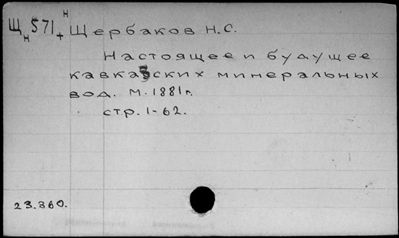 Щн571+н Щербаков Н.С.
Настоящее и будущее
кавказских минеральных
вод. М. 1881г.
стр. 1-62.
23.360.